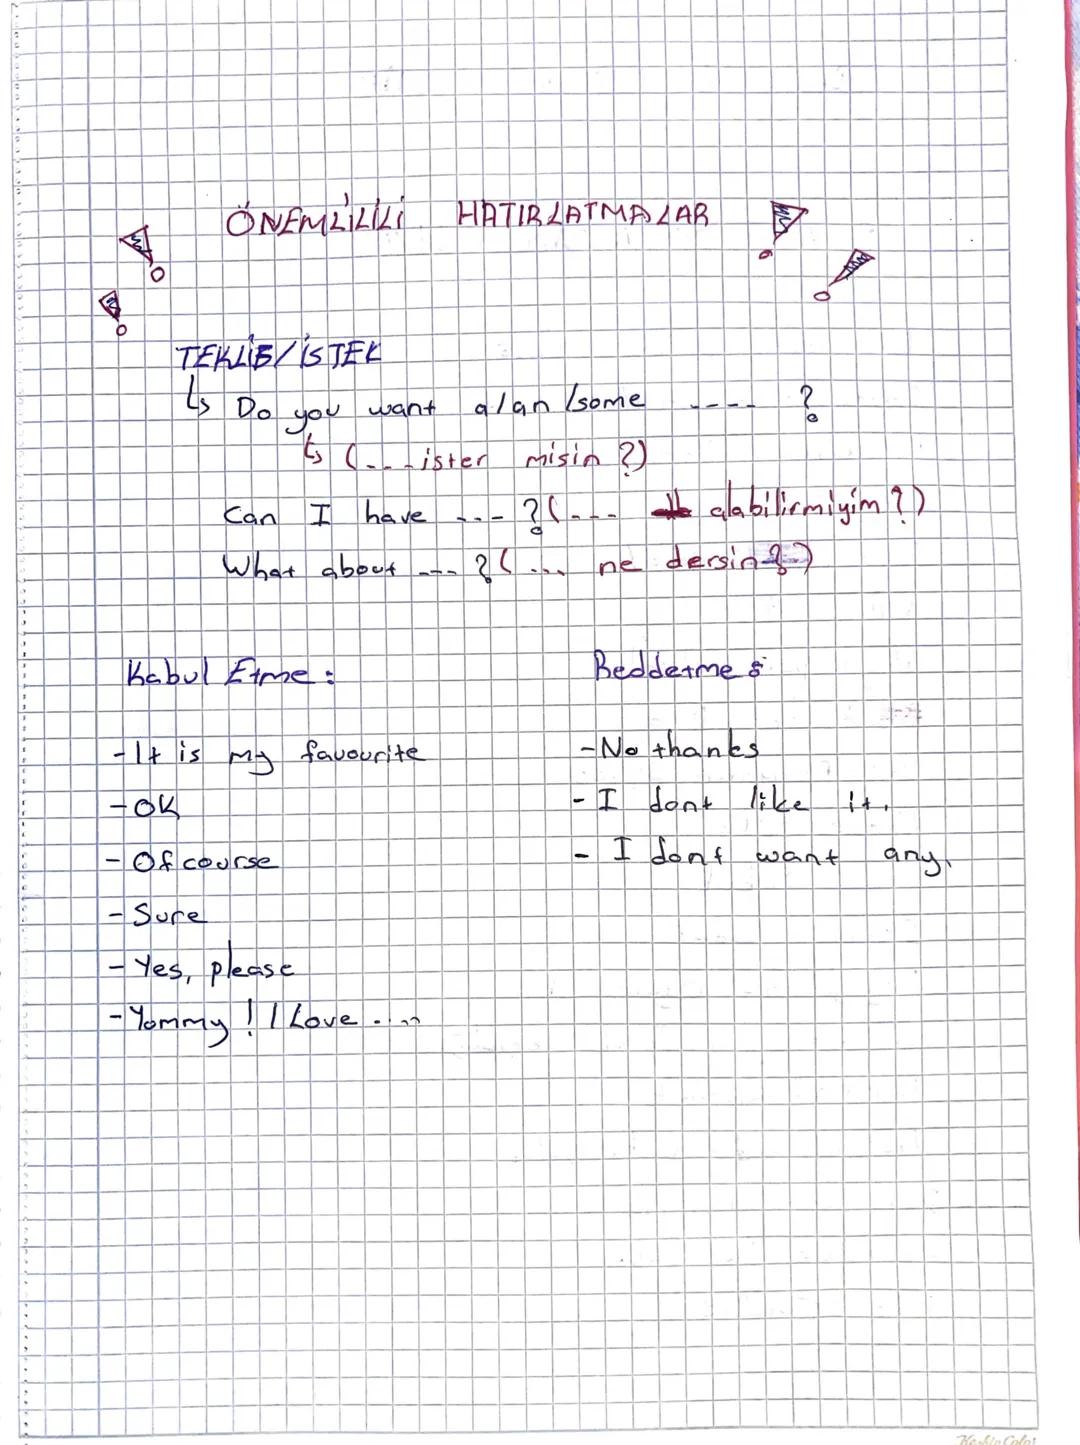 ÖNEMLİLİLİ HATIRLATMALAR
TEKLİB/İSTEK
↳ Do you want a/an/some ---- ?
↳ (... ister misin ?)
Can I have --- ? (--- alabilirmiyim ?)
What about --- ? (... ne dersin ?)
Kabul Etme :
- It is my favourite
- OK
- Of course
- Sure
- Yes, please
- Yommy ! I Love ....
Reddetme :
- No thanks
- I dont like it.
- I dont want any.
Keskin Color